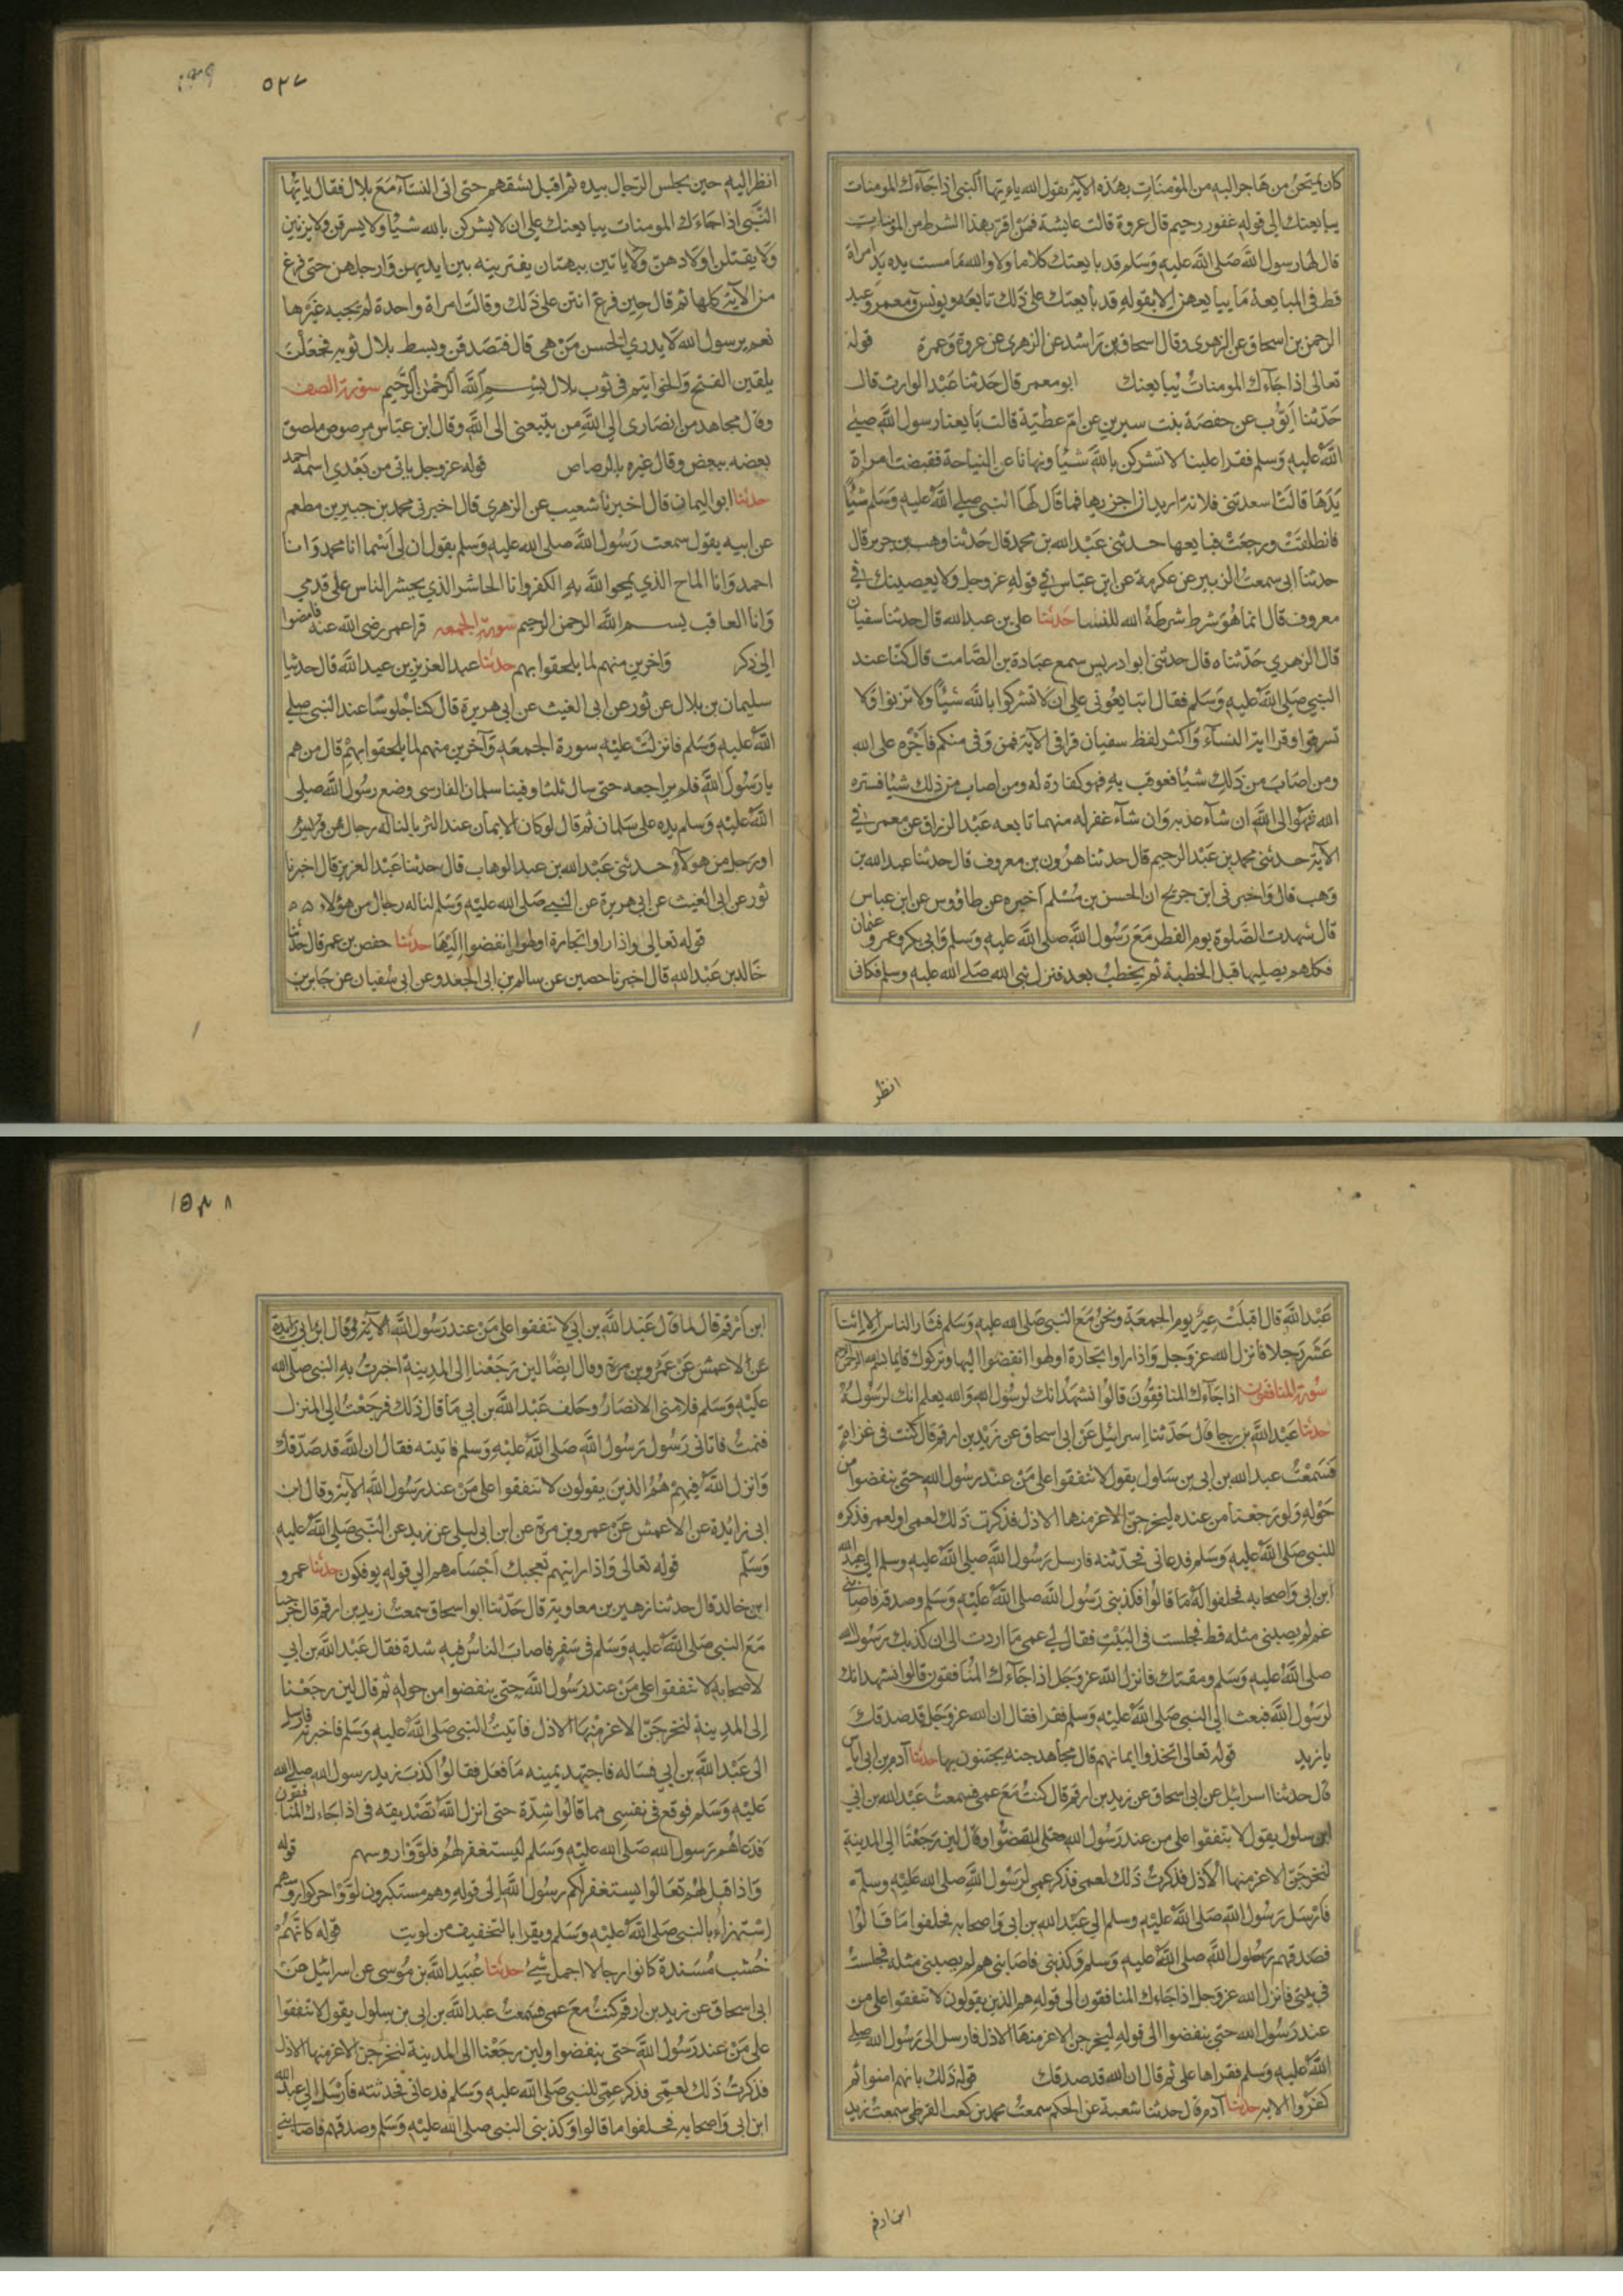 كان يمتحن من هاجر اليه من المومنات بهذه الآية بقول الله يا ايها النبي اذا جآءك المومنات
يبايعنك الى قوله غفور رحيم قال عروة قالت عايشة فمن اقر بهذا الشرط من المومنات
قال لها رسول الله صلى الله عليه وسلم قد بايعتك كلاما ولا والله ما مست يده يد امراة
قط في المبايعة ما يبايعهن الا بقوله قد بايعتك على ذلك تابعه يونس ومعمر وعبد
الرحمن بن اسحاق عن الزهري وقال اسحاق بن راشد عن الزهري عن عروة وعمرة قوله
تعالى اذا جآءك المومنات يبايعنك ابو معمر قال حدثنا عبد الوارث قال
حدثنا ايوب عن حفصة بنت سيرين عن ام عطية قالت بايعنا رسول الله صلى
الله عليه وسلم فقرا علينا لا تشركن بالله شيًا ونهانا عن النياحة فقبضت امراة
يدها قالت اسعدتني فلانة اريد ان اجزيها فما قال لها النبي صلى الله عليه وسلم شيًا
فانطلقت ورجعت فبايعها حدثني عبد الله بن محمد قال حدثنا وهب بن جرير قال
حدثنا ابي سمعت الزبير عن عكرمة عن ابن عباس في قوله عز وجل ولا يعصينك في
معروف قال انما هو شرط شرطه الله للنسا حدثنا علي بن عبد الله قال حدثنا سفيان
قال الزهري حدثناه قال حدثني ابو ادريس سمع عبادة بن الصامت قال كنا عند
النبي صلى الله عليه وسلم فقال اتبايعوني على ان لا تشركوا بالله شيًا ولا تزنوا ولا
تسرقوا وقرا اية النسآء واكثر لفظ سفيان قرا في الآية فمن وفى منكم فاجره على الله
ومن اصاب من ذلك شيًا فعوقب به فهو كفارة له ومن اصاب من ذلك شيًا فستره
الله فهو الى الله ان شآء عذبه وان شآء غفر له منهما تابعه عبد الرزاق عن معمر في
الآية حدثني محمد بن عبد الرحيم قال حدثنا هرون بن معروف قال حدثنا عبد الله بن
وهب قال واخبرني ابن جريح ان الحسن بن مسلم اخبره عن طاؤوس عن ابن عباس
قال شهدت الصلوة يوم الفطر مع رسول الله صلى الله عليه وسلم وابي بكر وعمر وعثمان
فكلهم يصليها قبل الخطبة ثم يخطب بعد فنزل نبي الله صلى الله عليه وسلم فكاني
انظر
٥٢٧
انظر اليه حين يجلس الرجال بيده ثم اقبل يشقهم حتى اتى النسآء مع بلال فقال يا ايها
النبي اذا جاءك المومنات يبايعنك على ان لا يشركن بالله شيًا ولا يسرقن ولا يزنين
ولا يقتلن اولادهن ولا ياتين ببهتان يفترينه بين ايديهن وارجلهن حتى فرغ
من الآية كلها ثم قال حين فرغ انتن على ذلك وقالت امراة واحدة لم يجبه غيرها
نعم يرسول الله لا يدري الحسن من هي قال فتصدقن وبسط بلال ثوبه فجعلن
يلقين الفتخ والخواتيم في ثوب بلال بسم الله الرحمن الرحيم سورة الصف
وقال مجاهد من انصاري الى الله من يتبعني الى الله وقال ابن عباس مرصوص ملصق
بعضه ببعض وقال غيره بالرصاص قوله عز وجل ياتي من بعدي اسمه احمد
حدثنا ابو اليمان قال اخبرنا شعيب عن الزهري قال اخبرني محمد بن جبير بن مطعم
عن ابيه يقول سمعت رسول الله صلى الله عليه وسلم يقول ان لي اسما انا محمد وانا
احمد وانا الماح الذي يمحو الله به الكفر وانا الحاشر الذي يحشر الناس على قدمي
وانا العاقب بسم الله الرحمن الرحيم سورة الجمعه قرا عمر رضي الله عنه فامضوا
الى ذكر واخرين منهم لما يلحقوا بهم حدثنا عبد العزيز بن عبد الله قال حدثنا
سليمان بن بلال عن ثور عن ابي الغيث عن ابي هريرة قال كنا جلوسًا عند النبي صلى
الله عليه وسلم فانزلت عليه سورة الجمعه وآخرين منهم لما يلحقوا بهم قال من هم
يا رسول الله فلم يراجعه حتى سال ثلثا وفينا سلمان الفارسي وضع رسول الله صلى
الله عليه وسلم يده على سلمان ثم قال لو كان الايمان عند الثريا لناله رجال من
او رجل من هولآء حدثني عبد الله بن عبد الوهاب قال حدثنا عبد العزيز قال اخبرنا
ثور عن ابي الغيث عن ابي هريرة عن النبي صلى الله عليه وسلم لناله رجال من هؤلاء
قوله تعالى واذا راوا تجارة او لهوا انفضوا اليها حدثنا حفص بن عمر قال حدثنا
خالد بن عبد الله قال اخبرنا حصين عن سالم بن ابي الجعد وعن ابي سفيان عن جابر بن
عبد الله قال اقبلت عير يوم الجمعة ونحن مع النبي صلى الله عليه وسلم فثار الناس الا اثنا
عشر رجلا فانزل الله عز وجل واذا راوا تجارة او لهوا انفضوا اليها وتركوك قايما
سورة المنافقون اذا جآءك المنافقون قالوا نشهد انك لرسول الله والله يعلم انك لرسوله
حدثنا عبد الله بن رجا قال حدثنا اسرائيل عن ابي اسحاق عن زيد بن ارقم قال كنت في غزاة
فسمعت عبد الله بن ابي بن سلول يقول لا تنفقوا على من عند رسول الله حتى ينفضوا من
حوله ولو رجعنا من عنده ليخرجن الاعز منها الاذل فذكرت ذلك لعمي او لعمر فذكره
للنبي صلى الله عليه وسلم فدعاني فحدثته فارسل رسول الله صلى الله عليه وسلم الى عبد الله
ابن ابي واصحابه فحلفوا له ما قالوا فكذبني رسول الله صلى الله عليه وسلم وصدقه فاصابني
غم لم يصبني مثله قط فجلست في البيت فقال لي عمي ما اردت الى ان كذبك رسول الله
صلى الله عليه وسلم ومقتك فانزل الله عز وجل اذا جآءك المنافقون قالوا نشهد انك
لرسول الله فبعث الي النبي صلى الله عليه وسلم فقرا فقال ان الله عز وجل قد صدقك
يا زيد قوله تعالى اتخذوا ايمانهم قال مجاهد جنه يجتنون بها حدثنا آدم بن ابي اياس
قال حدثنا اسرائيل عن ابي اسحاق عن زيد بن ارقم قال كنت مع عمي فسمعت عبد الله بن ابي
ابن سلول يقول لا تنفقوا على من عند رسول الله حتى ينفضوا وقال لين رجعنا الى المدينة
لنخرجن الاعز منها الاذل فذكرت ذلك لعمي فذكر عمي لرسول الله صلى الله عليه وسلم
فارسل رسول الله صلى الله عليه وسلم الى عبد الله بن ابي واصحابه فحلفوا ما قالوا
فصدقهم رسول الله صلى الله عليه وسلم وكذبني فاصابني هم لم يصبني مثله فجلست
في بيتي فانزل الله عز وجل اذا جاءك المنافقون الى قوله هم الذين يقولون لا تنفقوا على من
عند رسول الله حتى ينفضوا الى قوله ليخرجن الاعز منها الاذل فارسل الى رسول الله صلى
الله عليه وسلم فقراها علي ثم قال ان الله قد صدقك قوله ذلك بانهم امنوا ثم
كفروا الايه حدثنا آدم قال حدثنا شعبة عن الحكم سمعت محمد بن كعب القرظي سمعت زيد
ابن ارقم
ابن ارقم قال لما قال عبد الله بن ابي لا تنفقوا على من عند رسول الله الآية وقال ابن ابي زايدة
عن الاعمش عن عمرو بن مرة وقال ايضًا لين رجعنا الى المدينة اخبرت به النبي صلى الله
عليه وسلم فلامني الانصار وحلف عبد الله بن ابي ما قال ذلك فرجعت الى المنزل
فنمت فاتاني رسول رسول الله صلى الله عليه وسلم فاتيته فقال ان الله قد صدقك
وانزل الله فيهم هم الذين يقولون لا تنفقوا على من عند رسول الله الآية وقال ابن
ابي زائدة عن الاعمش عن عمرو بن مرة عن ابن ابي ليلى عن زيد عن النبي صلى الله عليه
وسلم قوله تعالى واذا رايتهم تعجبك اجسامهم الى قوله يوفكون حدثنا عمرو
ابن خالد قال حدثنا زهير بن معاوية قال حدثنا ابو اسحاق سمعت زيد بن ارقم قال خرجنا
مع النبي صلى الله عليه وسلم في سفر فاصاب الناس فيه شدة فقال عبد الله بن ابي
لاصحابه لا تنفقوا على من عند رسول الله حتى ينفضوا من حوله ثم قال لين رجعنا
الى المدينة لنخرجن الاعز منها الاذل فاتيت النبي صلى الله عليه وسلم فاخبرته فارسل
الى عبد الله بن ابي فساله فاجتهد يمينه ما فعل فقالوا كذب زيد رسول الله صلى الله
عليه وسلم فوقع في نفسي مما قالوا شدة حتى انزل الله تصديقه في اذا جاءك المنافقون
فدعاهم رسول الله صلى الله عليه وسلم ليستغفر لهم فلووا روسهم قوله
واذا قيل لهم تعالوا يستغفر لكم رسول الله الى قوله وهم مستكبرون لووا حركوا روسهم
استهزاء بالنبي صلى الله عليه وسلم ويقرا بالتخفيف من لويت قوله كانهم
خشب مسندة كانوا رجالا اجمل شيء حدثنا عبيد الله بن موسى عن اسرائيل عن
ابي اسحاق عن زيد بن ارقم كنت مع عمي فسمعت عبد الله بن ابي بن سلول يقول لا تنفقوا
على من عند رسول الله حتى ينفضوا ولين رجعنا الى المدينة لنخرجن الاعز منها الاذل
فذكرت ذلك لعمي فذكر عمي للنبي صلى الله عليه وسلم فدعاني فحدثته فارسل الى عبد الله
ابن ابي واصحابه فحلفوا ما قالوا وكذبني النبي صلى الله عليه وسلم وصدقهم فاصابني